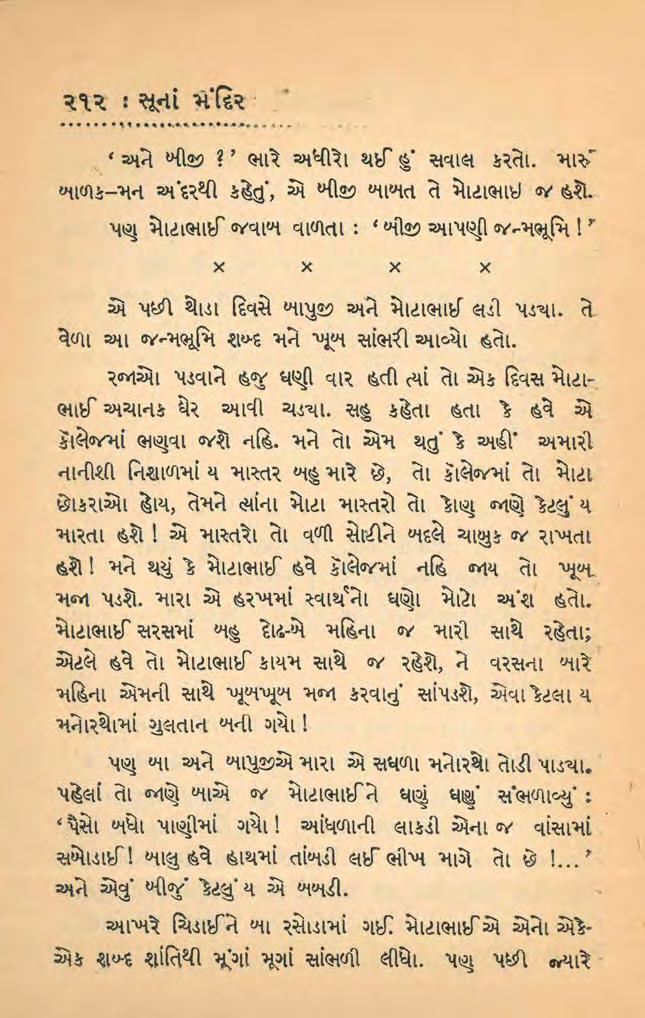 ૨૧૨ : સૂનાં મંદિર
‘ અને બીજી ?’ ભારે અધીરો થઈ હું સવાલ કરતો. મારું
બાળક–મન અંદરથી કહેતું, એ બીજી બાબત તે મોટાભાઇ જ હશે.
પણ મોટાભાઈ જવાબ વાળતા : ‘બીજી આપણી જન્મભૂમિ !’
× × × ×
એ પછી થોડા દિવસે બાપુજી અને મોટાભાઈ લડી પડ્યા. તે
વેળા આ જન્મભૂમિ શબ્દ મને ખૂબ સાંભરી આવ્યો હતો.
રજાઓ પડવાને હજુ ઘણી વાર હતી ત્યાં તો એક દિવસ મોટા-
ભાઈ અચાનક ઘેર આવી ચડ્યા. સહુ કહેતા હતા કે હવે એ
કૉલેજમાં ભણવા જશે નહિ. મને તો એમ થતું કે અહીં અમારી
નાનીશી નિશાળમાં ય માસ્તર બહુ મારે છે, તો કૉલેજમાં તો મોટા
છોકરાઓ હોય, તેમને ત્યાંના મોટા માસ્તરો તો કોણ જાણે કેટલું ય
મારતા હશે ! એ માસ્તરો તો વળી સોટીને બદલે ચાબુક જ રાખતા
હશે ! મને થયું કે મોટાભાઈ હવે કૉલેજમાં નહિ જાય તો ખૂબ
મજા પડશે. મારા એ હરખમાં સ્વાર્થનો ઘણો મોટો અંશ હતો.
મોટાભાઈ સરસમાં બહુ દોઢ-એ મહિના જ મારી સાથે રહેતા;
એટલે હવે તો મોટાભાઈ કાયમ સાથે જ રહેશે, ને વરસના બારે
મહિના એમની સાથે ખૂબખૂબ મજા કરવાનું સાંપડશે, એવા કૈટલા ય
મનોરથોમાં ગુલતાન બની ગયો !
પણ બા અને બાપુજીએ મારા એ સઘળા મનોરથો તોડી પાડ્યા.
પહેલાં તો જાણે બાએ જ મોટાભાઈને ઘણું ઘણું સંભળાવ્યું :
‘પૈસો બધો પાણીમાં ગયો ! આંધળાની લાકડી એના જ વાંસામાં
સબોડાઈ ! બાલુ હવે હાથમાં તાંબડી લઈ ભીખ માગે તો છે !...’
અને એવું બીજું કેટલું ય એ બબડી.
આખરે ચિડાઈને બા રસોડામાં ગઈ. મોટાભાઈએ એનો એકે-
એક શબ્દ શાંતિથી મૂંગાં મૂગાં સાંભળી લીધો. પણ પછી જ્યારે